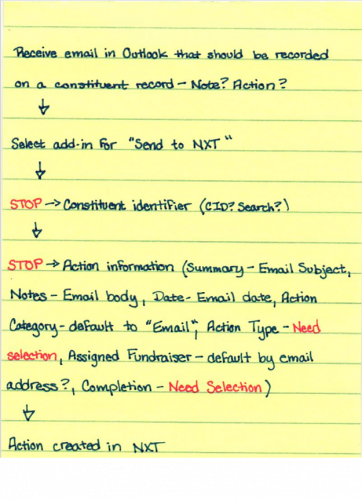 Receive email in Outlook that should be recorded
on a constituent record - Note? Action?
↓
Select add-in for "Send to NXT"
↓
STOP → Constituent identifier (CID? Search?)
↓
STOP → Action information (Summary - Email Subject,
Notes - Email body, Date - Email date, Action
Category - default to "Email", Action Type - Need
selection, Assigned Fundraiser - default by email
address?, Completion - Need Selection)
↓
Action created in NXT